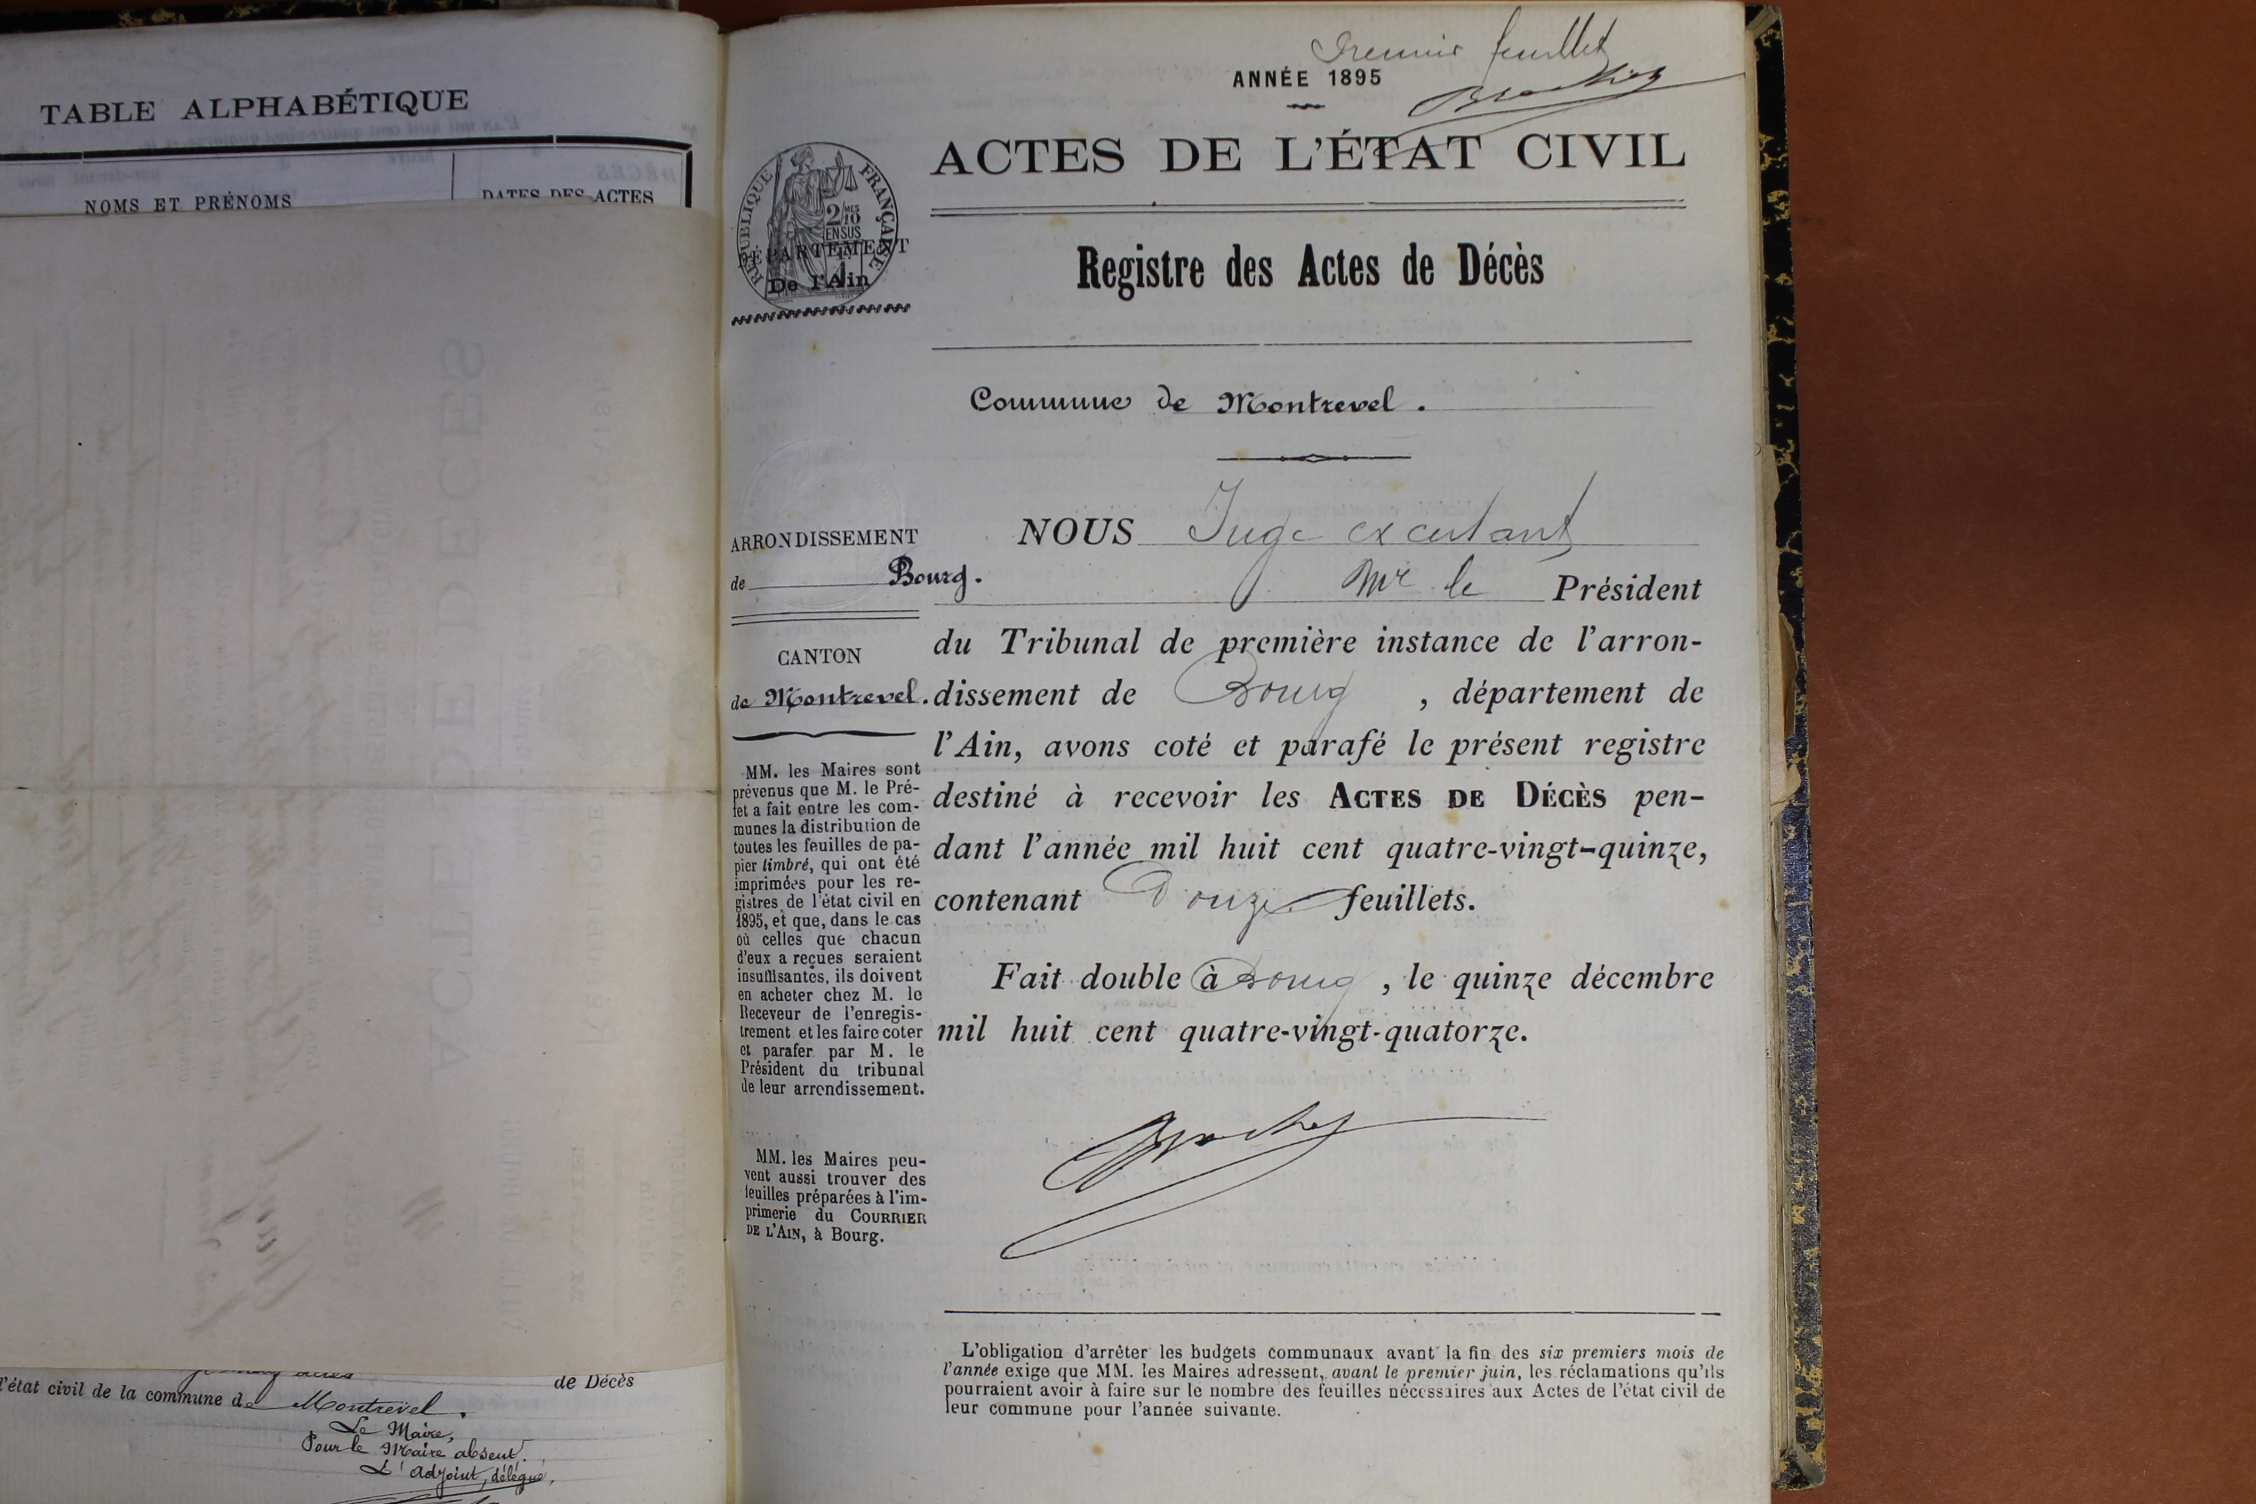 TABLE ALPHABÉTIQUE
NOMS ET PRÉNOMS
DATES DES ACTES
de Décès
l'état civil de la commune de Montrevel.
Le Maire,
Pour le Maire absent.
L'adjoint, délégué,
Premier feuillet
ANNÉE 1895
ACTES DE L'ÉTAT CIVIL
RÉPUBLIQUE FRANÇAISE
2/10
MES
EN SUS
DÉPARTEMENT
De l'Ain
Registre des Actes de Décès
Commune de Montrevel.
ARRONDISSEMENT
de Bourg.
CANTON
de Montrevel.
MM. les Maires sont
prévenus que M. le Pré-
fet a fait entre les com-
munes la distribution de
toutes les feuilles de pa-
pier timbré, qui ont été
imprimées pour les re-
gistres de l'état civil en
1895, et que, dans le cas
où celles que chacun
d'eux a reçues seraient
insuffisantes, ils doivent
en acheter chez M. le
Receveur de l'enregis-
trement et les faire coter
et parafer par M. le
Président du tribunal
de leur arrondissement.
MM. les Maires peu-
vent aussi trouver des
feuilles préparées à l'im-
primerie du COURRIER
DE L'AIN, à Bourg.
NOUS Juge
Mr le Président
du Tribunal de première instance de l'arron-
dissement de Bourg, département de
l'Ain, avons coté et parafé le présent registre
destiné à recevoir les ACTES DE DÉCÈS pen-
dant l'année mil huit cent quatre-vingt-quinze,
contenant Douze feuillets.
Fait double à Bourg, le quinze décembre
mil huit cent quatre-vingt-quatorze.
L'obligation d'arrêter les budgets communaux avant la fin des six premiers mois de
l'année exige que MM. les Maires adressent, avant le premier juin, les réclamations qu'ils
pourraient avoir à faire sur le nombre des feuilles nécessaires aux Actes de l'état civil de
leur commune pour l'année suivante.